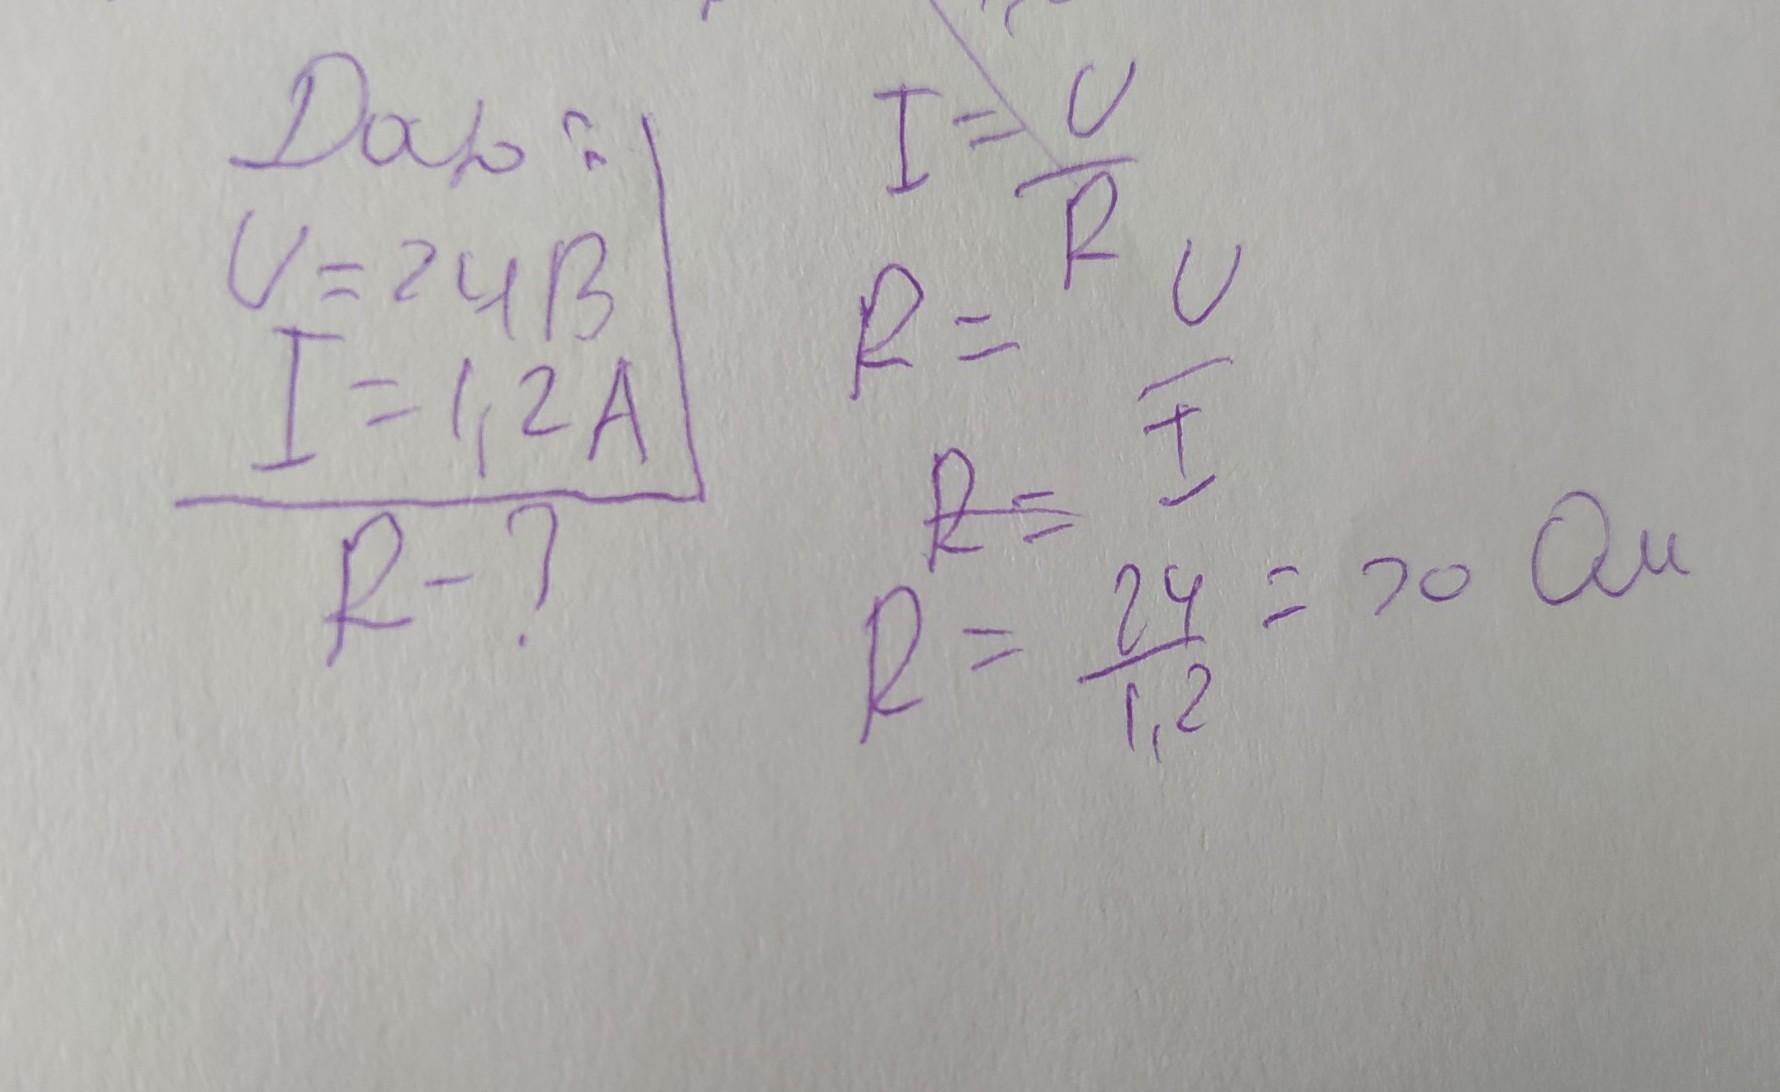 Дано:
U=24В
I=1,2А
R-?
I=U/R
R=U/I
R=
R=24/1,2=20 Ом